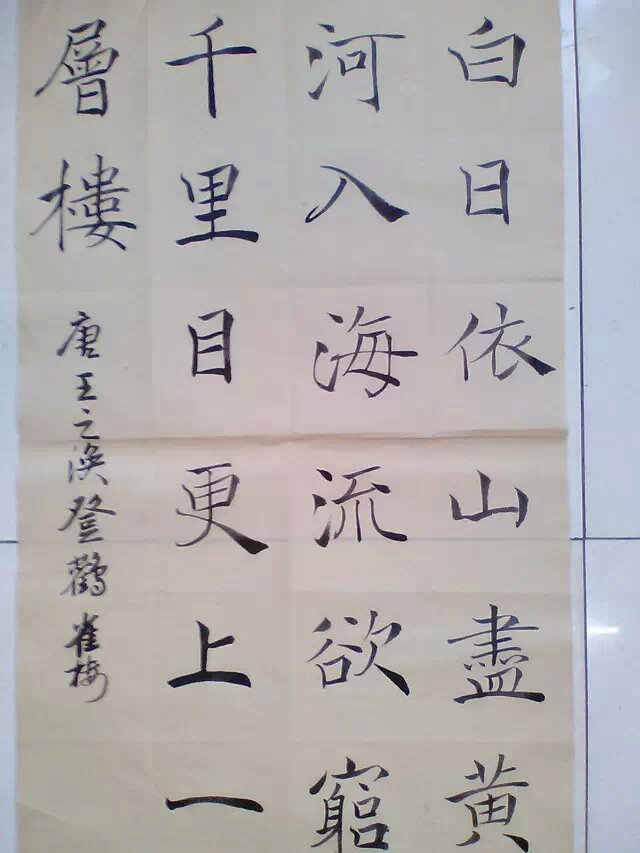 白日依山盡黃
河入海流欲窮
千里目更上一
層樓
唐王之渙登鸛雀樓